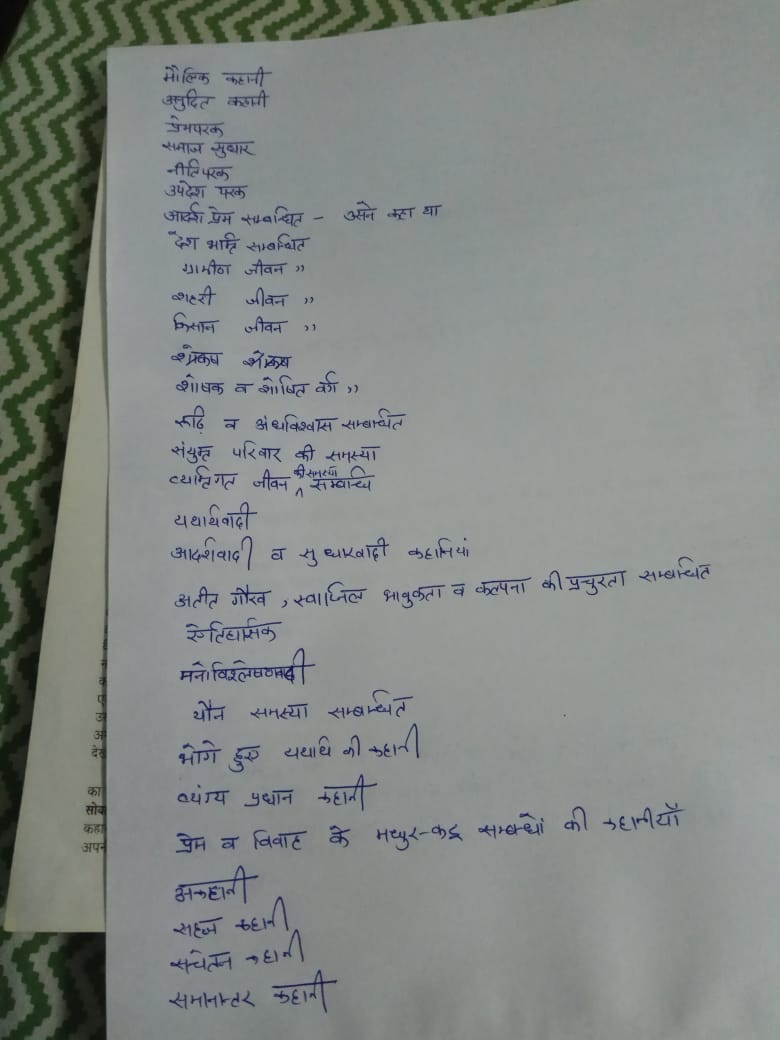 मौलिक कहानी
अनुदित कहानी
प्रेमपरक
समाज सुधार
नीतिपरक
उपदेश परक
आदर्श प्रेम सम्बन्धित - उसने कहा था
देश भक्ति सम्बन्धित
ग्रामीण जीवन ,,
शहरी जीवन ,,
किसान जीवन ,,
शोषक व शोषित वर्ग ,,
रूढ़ि व अंधविश्वास सम्बन्धित
संयुक्त परिवार की समस्या
व्यक्तिगत जीवन की समस्या सम्बन्धि
यथार्थवादी
आदर्शवादी व सुधारवादी कहानियां
अतीत गौरव, स्वाप्निल भावुकता व कल्पना की प्रचुरता सम्बन्धित
ऐतिहासिक
मनोविश्लेषणवादी
यौन समस्या सम्बन्धित
भोगे हुए यथार्थ की कहानी
व्यंग्य प्रधान कहानी
प्रेम व विवाह के मधुर-कटु सम्बन्धों की कहानीयाँ
अकहानी
सहज कहानी
सचेतन कहानी
समानान्तर कहानी
का
सोव
कहा
अपन